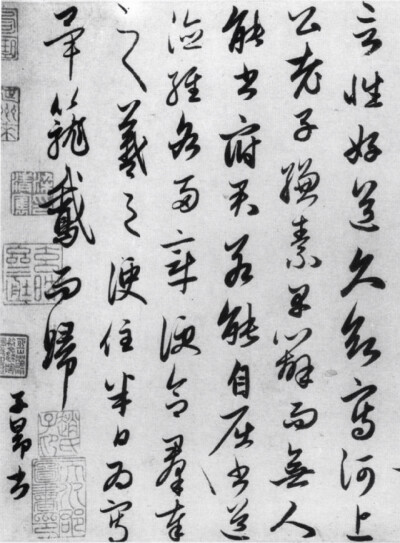 言性好道久欲寫河上
公老子縑素早辦而無人
能書府君若能自屈書道
德經各兩章便合羣奉
之羲之便住半日為寫
畢籠鵞而歸
子昂書